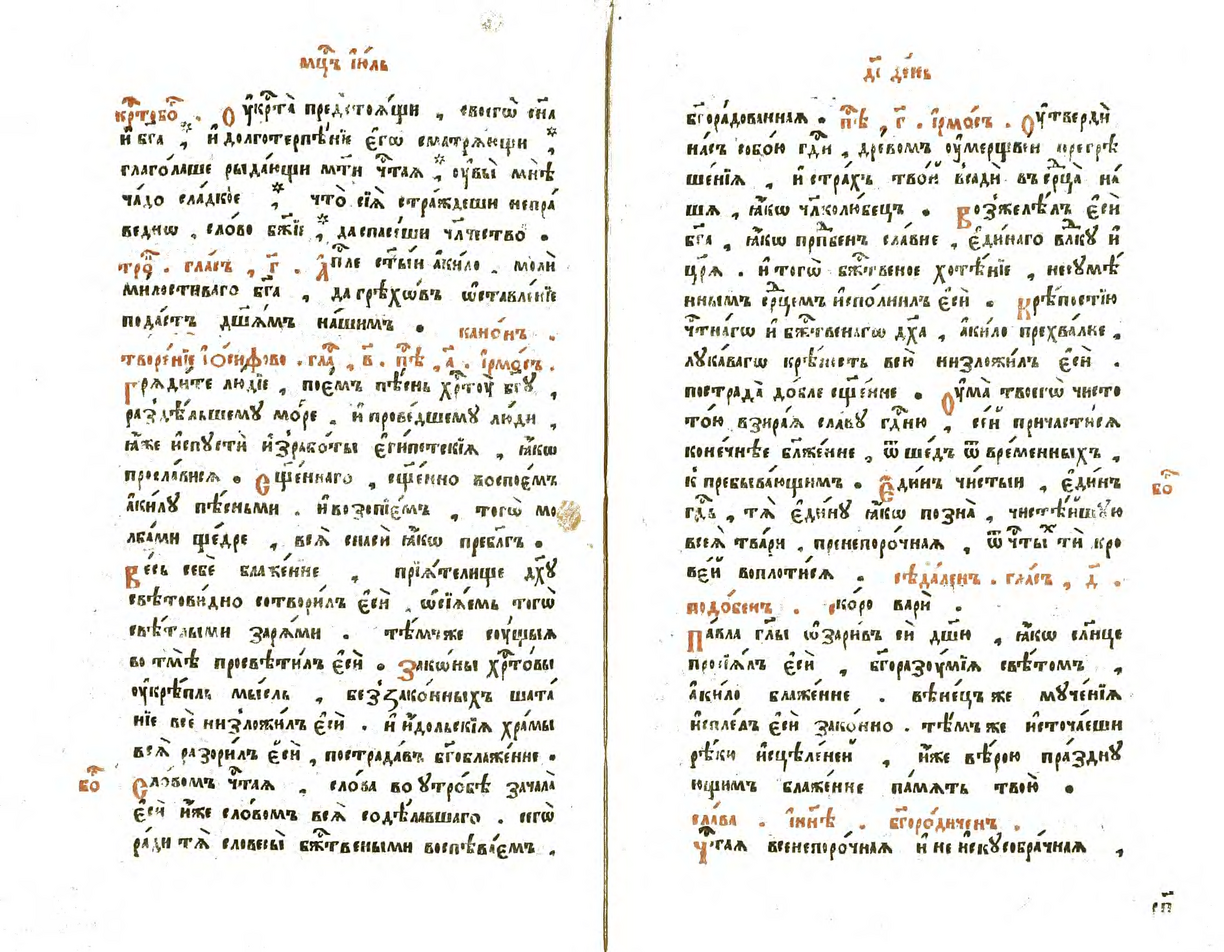 мц҇ъ і҆ю́ль
кр҇тобо҇ . Оу҆ кр҇та̀ предстоѧ́щи , своегѡ̀ сн҃а
и҆ бг҃а * , и҆ долготерпѣ́нїе є҆гѡ̀ сматрѧ́ющи *
глаго́лаше рыда́ющи мт҃и чт҇аѧ * , оу҆вы̀ мнѣ̀
ча́до сла́дкое * , что̀ сїѧ̀ стра́ждеши непра́
веднѡ , сло́во бж҃їе * , да спасе́ши чл҃чество̀ .
тро҇ . гла́съ , г҃ . А҆п҇ле ст҃ы́и а҆ки́ло . молѝ
ми́лостиваго бг҃а , да грѣхо́въ ѡ҆ставле́нїе
пода́стъ дш҃а́мъ на́шимъ . кано́нъ .
творе́нїе і҆о́сифово . гла҇ , в҃ . пѣ҇ , а҃ . і҆рмо́съ .
Грѧди́те лю́дїе , пое́мъ пѣ́снь хр҇тоу̀ бг҃у ,
раздѣ́льшему мо́ре , и҆ прове́дшему лю́ди ,
ꙗ҆̀же и҆спустѝ и҆з̾рабо́ты є҆ги́петскїѧ , ꙗ҆́кѡ
просла́висѧ . Сщ҃е́ннаго , сщ҃е́нно воспое́мъ
а҆ки́лу пѣ́сньми . и҆ возопїе́мъ , тогѡ̀ мо
лба́ми ще́дре , всѧ̀ спасѝ ꙗ҆́кѡ пребл҃гъ .
Ве́сь себѐ бл҃же́нне , прїѧ́телище дх҃у
свѣтови́дно сотвори́лъ є҆сѝ , ѡ҆сїѧ́емь тогѡ̀
свѣ́тлыми зарѧ́ми . тѣ́мъже соу́щыѧ
во тмѣ̀ просвѣти́лъ є҆сѝ . Зако́ны хр҇то́вы
оу҆крѣ́пль мы́сль , без̾зако́нныхъ шата́
нїе всѐ низложи́лъ є҆сѝ . и҆ и҆́дольскїѧ хра́мы
всѧ̀ разори́лъ є҆сѝ , пострада́въ бг҃обл҃же́нне .
бо҇ Сло́вомъ чт҇аѧ , сло́ва во утро́бѣ зачала̀
є҆сѝ и҆́же сло́вомъ всѧ̀ содѣ́лавшаго . сегѡ̀
ра́ди тѧ̀ словесы̀ бж҇твеными воспѣва́емъ .
д҃і де́нь
бг҃ора́дованнаѧ . пѣ҇ , г҃ . і҆рмо́съ . Оу҆твердѝ
на́съ собо́ю гд҇и , дре́вомъ оу҆ме́рщвеи прегрѣ
ше́нїѧ , и҆ стра́хъ тво́й всадѝ въ ср҃ца̀ на́
ша , ꙗ҆́кѡ чл҃колю́бецъ . Возжелѣ́лъ є҆сѝ
бг҃а , ꙗ҆́кѡ прп҇бенъ сла́вне , є҆ди́наго влⷣку и҆
цр҃ѧ̀ . и҆ тогѡ̀ бж҇твеное хотѣ́нїе , несумѣ́
ннымъ ср҃цемъ и҆спо́лнилъ є҆сѝ . Крѣ́постїю
чт҇на́гѡ и҆ бж҇твенагѡ дх҃а , а҆ки́ло прехва́лне ,
лука́вагѡ крѣ́пость всю̀ низложи́лъ є҆сѝ .
пострада̀ до́бле сщ҃е́нне . Оу҆ма̀ твоегѡ̀ чисто
то́ю взира́ѧ сла́ву гд҇ню , се́й причасти́сѧ
коне́чнѣе бл҃же́нне , ѿше́дъ ѿ вре́менныхъ ,
к пребыва́ющимъ . бо҇ Е҆ди́нъ чи́стыи , є҆ди́нъ
гд҇ь , тѧ̀ є҆ди́ну ꙗ҆́кѡ позна̀ , чистѣ́йшую
всеѧ̀ тва́ри , пренепоро́чнаѧ , ѿ чт҇ы́х ти̑ кро
ве́й воплоти́сѧ . сѣда́ленъ . гла́съ , д҃ .
подо́бенъ . ско́ро варѝ .
Па́вла гл҃ы ѡ҆зари́въ сѝ дш҃ю , ꙗ҆́кѡ сл҃нце
просїѧ́лъ є҆сѝ , бг҃оразоу́мїѧ свѣ́томъ ,
а҆ки́ло бл҃же́нне . вѣне́цъ же муче́нїѧ
и҆сплелъ є҆сѝ зако́нно . тѣ́мъже и҆сточа́еши
рѣ́ки и҆сцѣле́ней , и҆́же вѣ́рою пра́здну
ющимъ бл҃же́нне па́мѧть твою̀ .
сла́ва . і҆ ны́нѣ . бг҃оро́диченъ .
Чт҇аѧ всенепоро́чнаѧ и҆ не и҆скусобра́чнаѧ ,
сп҃